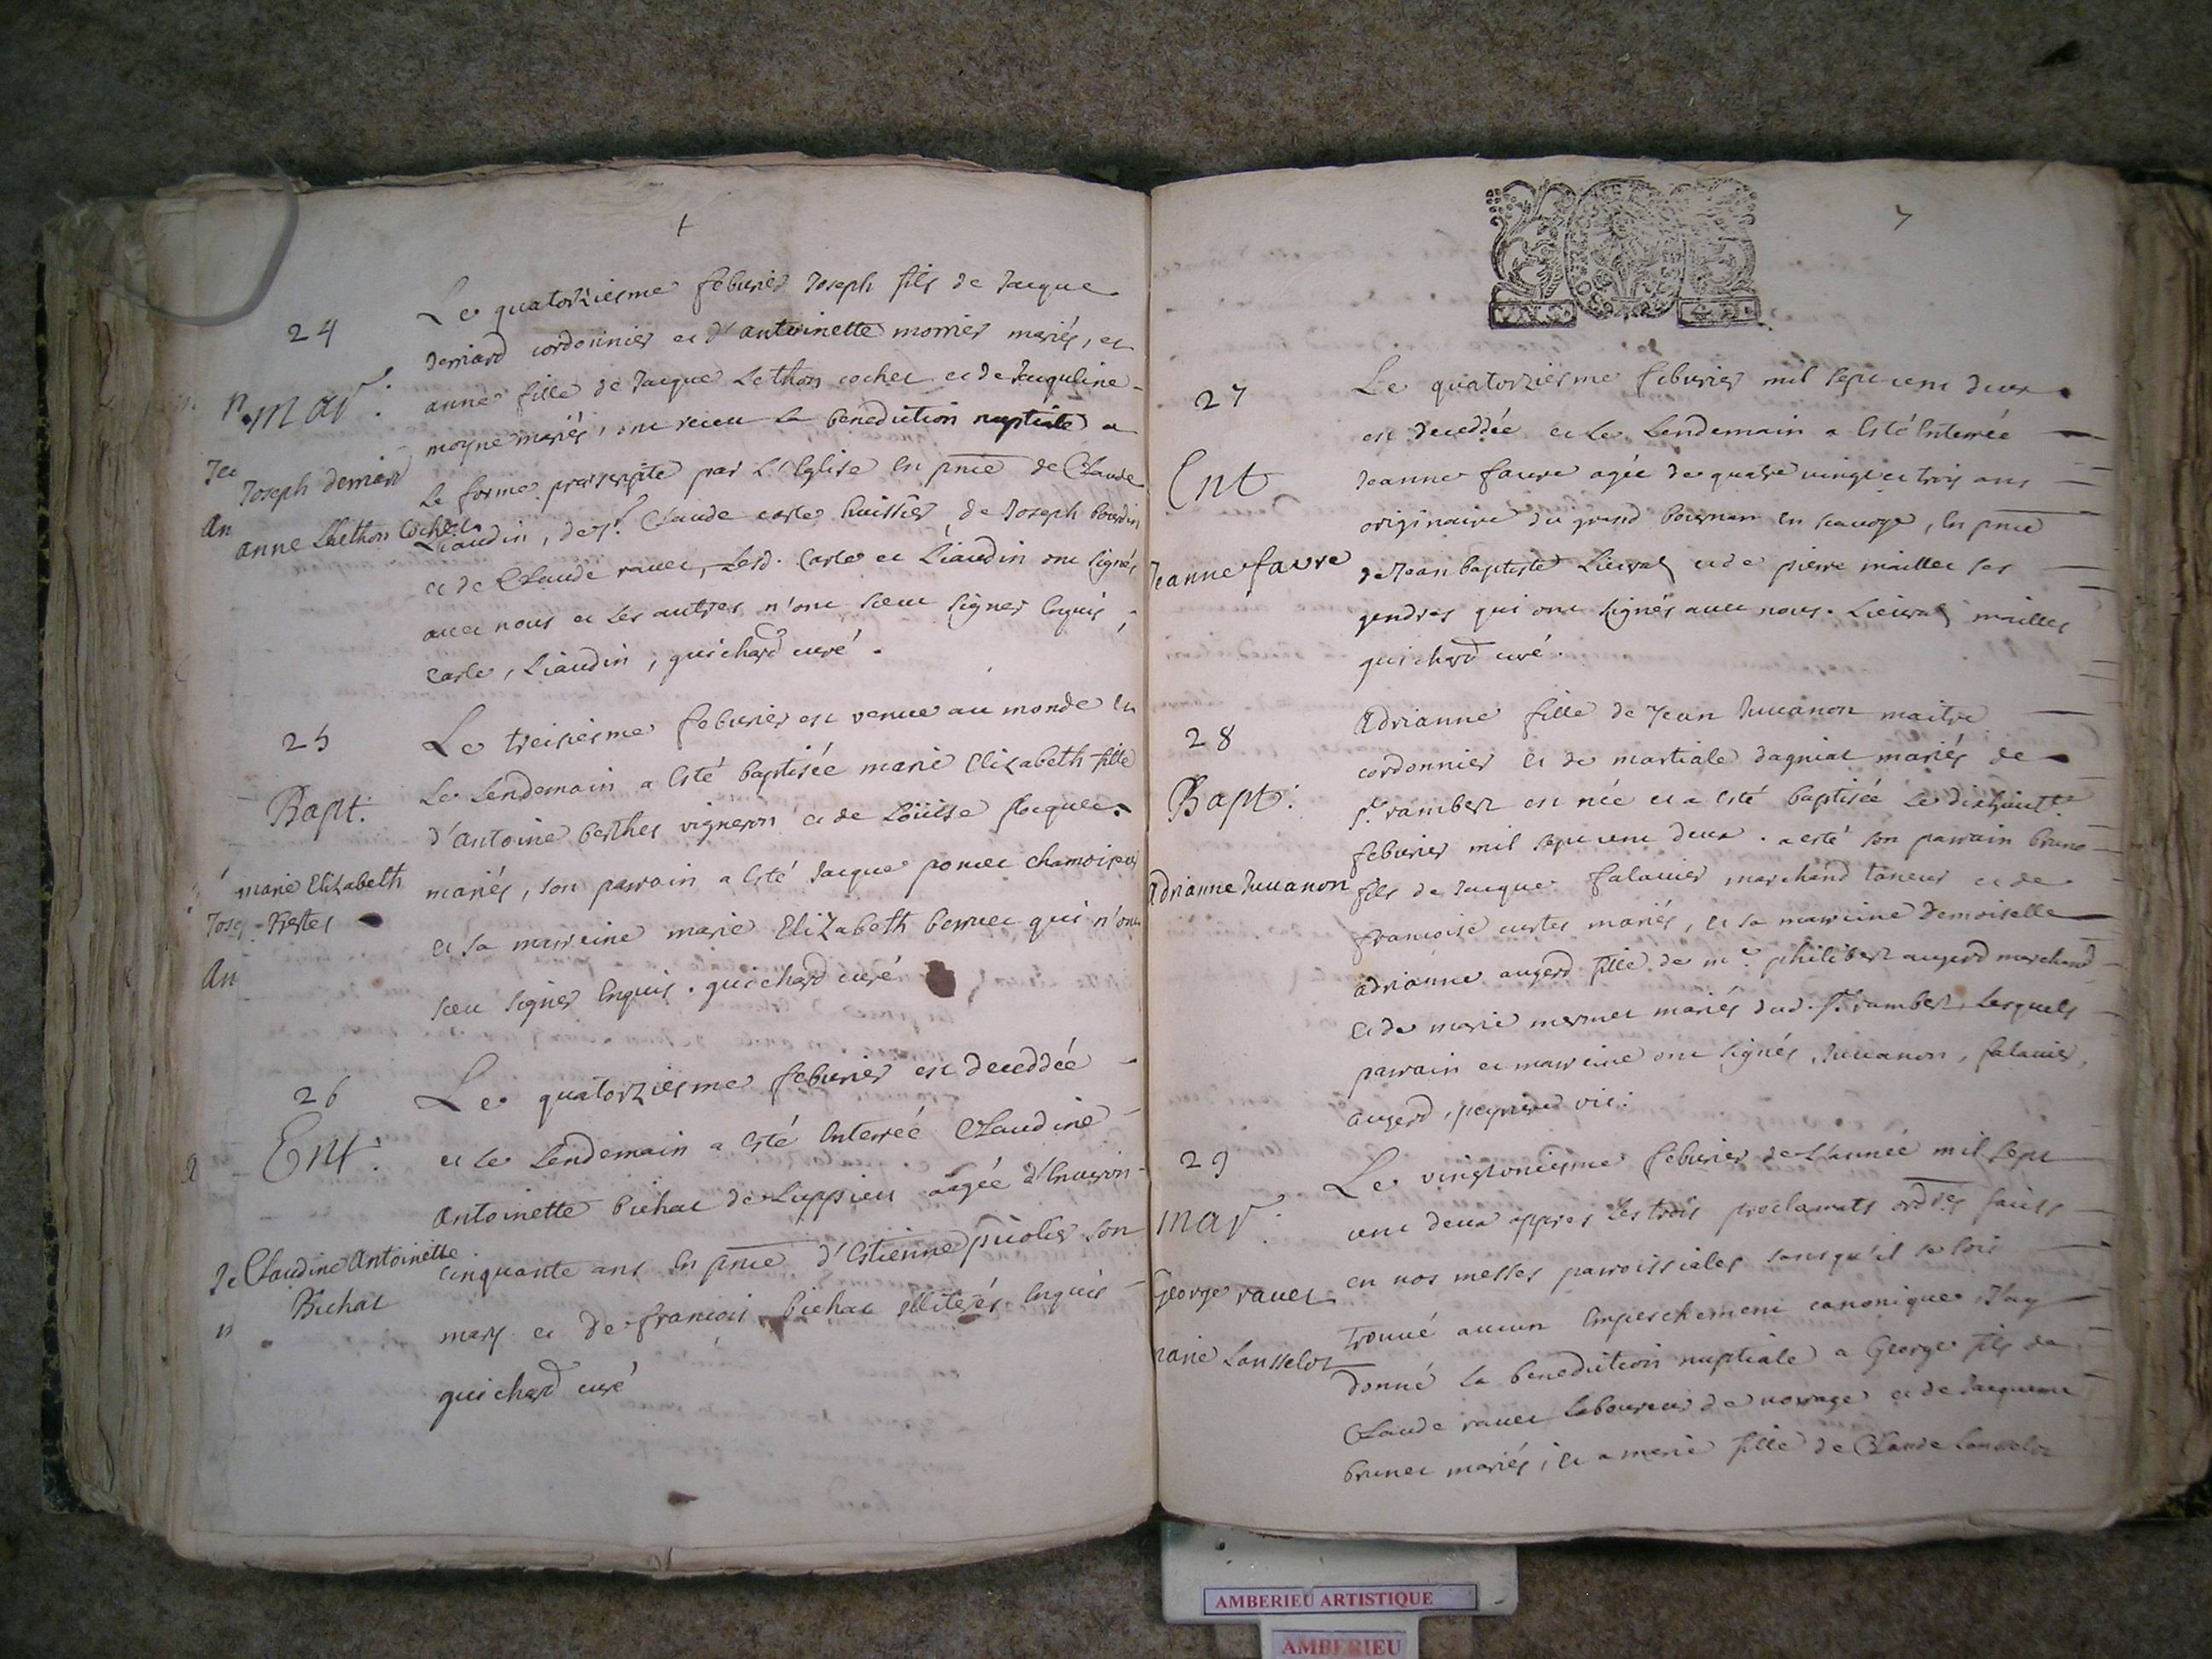 24
mar.
Joseph derriard
anne Lhethon Cochet
Le quatorziesme feburier Joseph fils de Jacque
derriard cordonnier et d'antoinette morrier mariés, et
anne fille de Jacque Lethon cochet et de Jacquline
moyne mariés, ont receu la benediction nuptiale a
la forme prescripte par L'Eglise En pnce de Claude
Liaudin, de Sr. Claude carle huissier, de Joseph bourdin
et de Claude ravet, Lesd. Carle et Liaudin ont signés
avec nous et les autres n'ont sceu signer Enquis,
Carle, Liaudin, guichard curé.
25
Bapt.
marie Elizabeth
Le treisiesme feburier est venue au monde et
Le Lendemain a Esté baptisée marie Elizabeth fille
d'Antoine berthet vigneron et de Loüise
mariés, son parrain a Esté Jacque poncet chamoiseur
et sa marreine marie Elizabeth bornet qui n'ont
sceu signer Enquis. guichard curé
26
Ent.
Claudine Antoinette
Bichat
Le quatorziesme feburier est deceddée
et le Lendemain a Esté Enterréé Claudine
Antoinette bichat de Luppieu aagée d'Environ
cinquante ans En pnce d'Estienne picolet son
mary et de francois bichat illiterés Enquis
guichard curé
7
27
Ent
Jeanne favre
Le quatorziesme feburier mil sept cent deux
est deceddée et Le Lendemain a Esté Enterrée
Jeanne favre agée de quatre vingt et trois ans
originaire du grand bournan En sauoye, En pnce
de Jean baptiste et de pierre maillet ses
gendres qui ont signés avec nous. maillet
guichard curé.
28
Bapt.
Adrianne Juuanon
Adrianne fille de Jean Juuanon maitre
cordonnier et de martiale dagniat mariés de
St. rambert est née et a esté baptisée Le dixhuitte
feburier mil sept cent deux. a esté son parrain bruno
fils de Jacque falauier marchand taneur et de
francoise curtet mariés, et sa marreine demoiselle
adrianne augerd fille de me. philibert augerd marchand
et de marie mermet mariés dud. St. rambert, Lesquels
parrain et marreine ont signés, Juuanon, falauier,
augerd, vic.
29
mar.
George ravet
marie Lousselot
Le vingtoniesme feburier de L'année mil sept
cent deux appres Les trois proclamats ordres faicts
en nos messes parroissiales sans qu'il se soit
trouué aucun Empeschement canonique, J'ay
donné la benediction nuptiale a George fils de
Claude ravet laboureur de et de Jacqueme
brunet mariés, et a marie fille de Claude Lousselot
AMBERIEU ARTISTIQUE
AMBERIEU